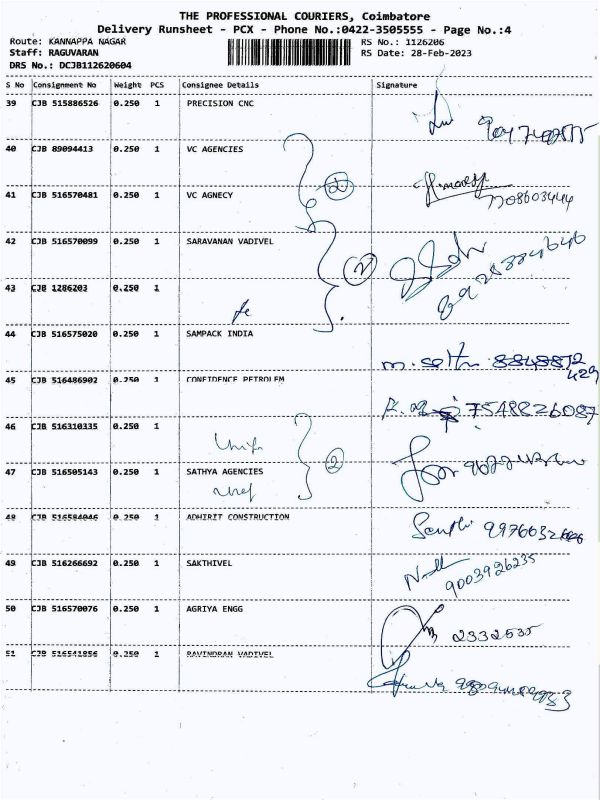 THE PROFESSIONAL COURIERS, Coimbatore
Delivery Runsheet - PCX - Phone No.:0422-3505555 - Page No.:4
Route: KANNAPPA NAGAR
RS No.: 1126206
Staff: RAGUVARAN
RS Date: 28-Feb-2023
DRS No.: DCJB112620604
S No Consignment No Weight PCS Consignee Details Signature
39 CJB 515886526 0.250 1 PRECISION CNC
40 CJB 89094413 0.250 1 VC AGENCIES
41 CJB 516570481 0.250 1 VC AGNECY
7708603444
42 CJB 516570099 0.250 1 SARAVANAN VADIVEL
2
43 CJB 1286203 0.250 1
44 CJB 516575020 0.250 1 SAMPACK INDIA
45 CJB 516486902 0.250 1 CONFIDENCE PETROLEM
7548826087
46 CJB 516310335 0.250 1
2
47 CJB 516505143 0.250 1 SATHYA AGENCIES
48 CJB 516584046 0.250 1 ADHIRIT CONSTRUCTION
49 CJB 516266692 0.250 1 SAKTHIVEL
9003926235
50 CJB 516570076 0.250 1 AGRIYA ENGG
2332535
51 CJB 516541856 0.250 1 RAVINDRAN VADIVEL